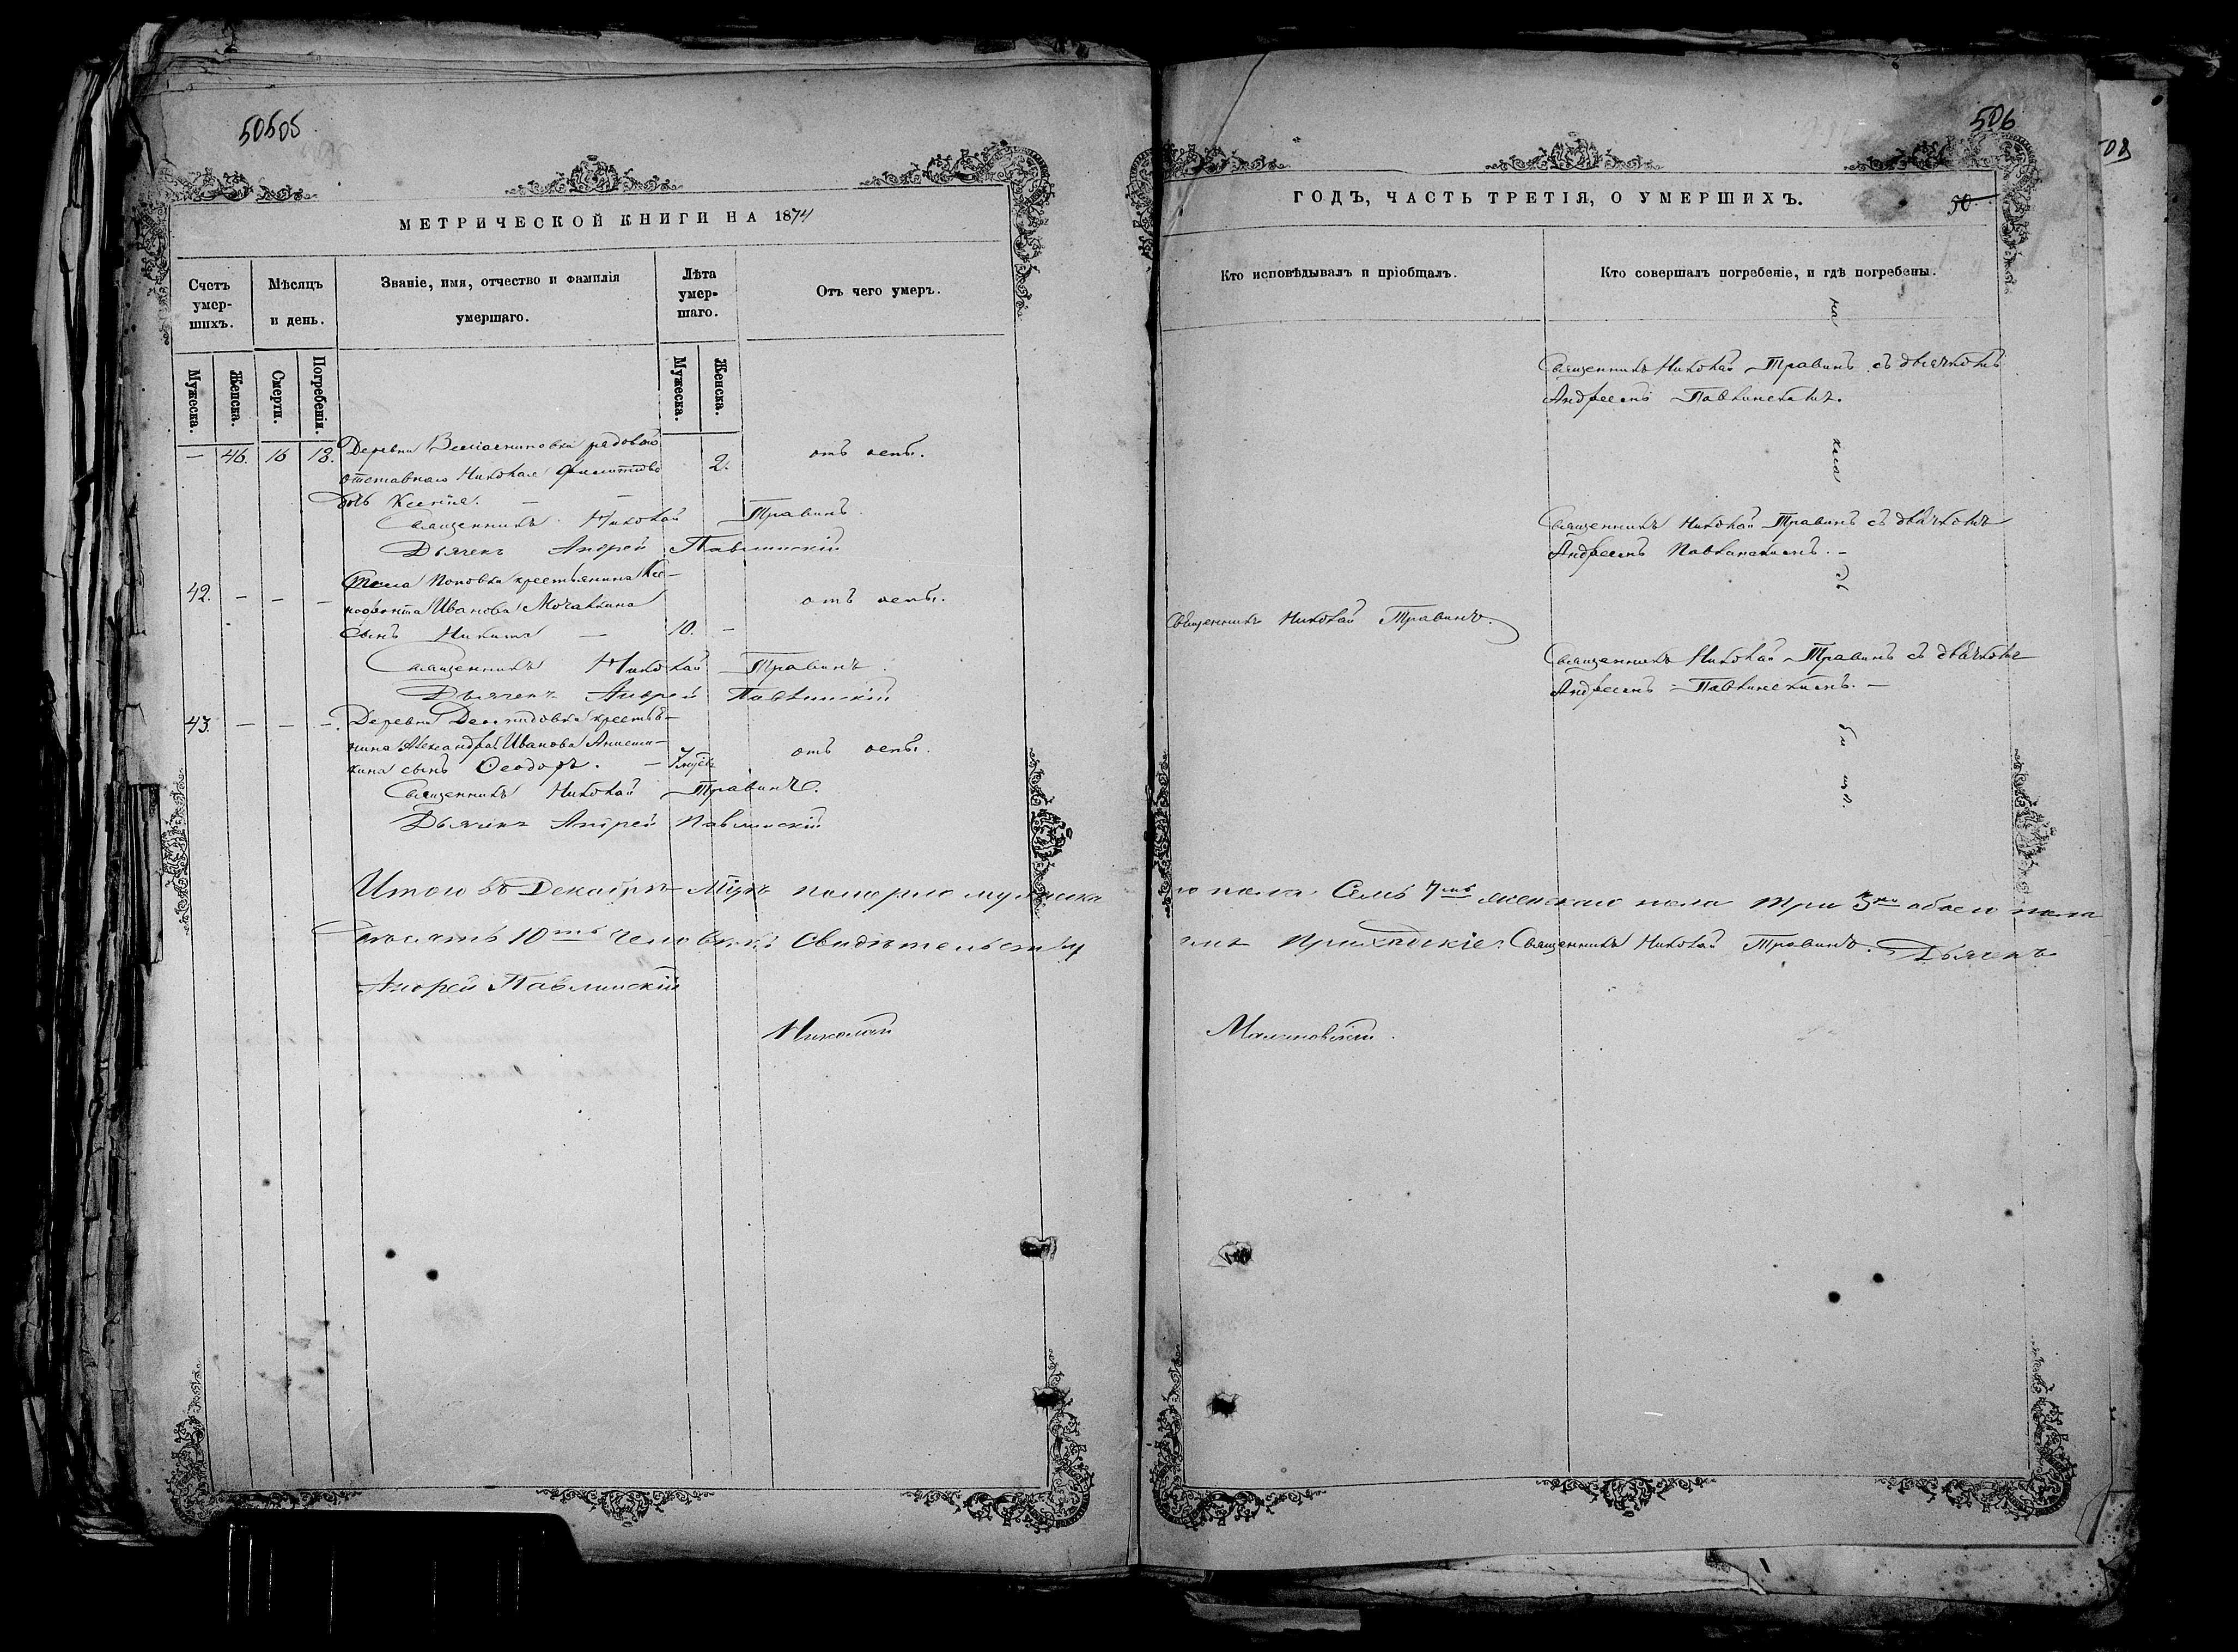 50505
МЕТРИЧЕСКОЙ КНИГИ НА 1874
Счетъ умер-шихъ.
Мѣсяцъ и день.
Званіе, имя, отчество и фамилія умершаго.
Лѣта умер-шаго.
Отъ чего умеръ.
Мужеска.
Женска.
Смерти.
Погребенія.
Мужеска.
Женска.
— 46. 16 18. Деревни рядоваго 2. отъ оспы.
отставнаго Николая Филиппова
дочь Ксенія. — —
Священникъ Николай Травинъ.
Дьячекъ Андрей Павлинскій
42. — — — Села Поповки крестьянина Ксе- отъ оспы.
нофонта Иванова Мочалкина
сынъ Никита — 10. —
Священникъ Николай Травинъ.
Дьячекъ Андрей Павлинскій
43. — — —. Деревни Демидовки крестья-
нина Александра Иванова отъ оспы.
сынъ Ѳеодоръ. —
Священникъ Николай Травинъ.
Дьячекъ Андрей Павлинскій
Итого въ Декабрѣ Мцѣ померло мужеска
десять 10ть человѣкъ Свидѣтельству
Андрей Павлинскій
Николай
506
ГОДЪ, ЧАСТЬ ТРЕТІЯ, О УМЕРШИХЪ.
50.
Кто исповѣдывалъ и пріобщалъ.
Кто совершалъ погребеніе, и гдѣ погребены.
На
Священникъ Николай Травинъ съ дьячкомъ
Андреемъ Павлинскимъ.
Священникъ Николай Травинъ съ дьячкомъ
Андреемъ Павлинскимъ. —
Священникъ Николай Травинъ.
Священникъ Николай Травинъ съ дьячкомъ
Андреемъ Павлинскимъ. —
го пола Семь 7мь женскаго пола три 3ри обоего пола
емъ Приходскіе: Священникъ Николай Травинъ. Дьячекъ
Малиновскій.